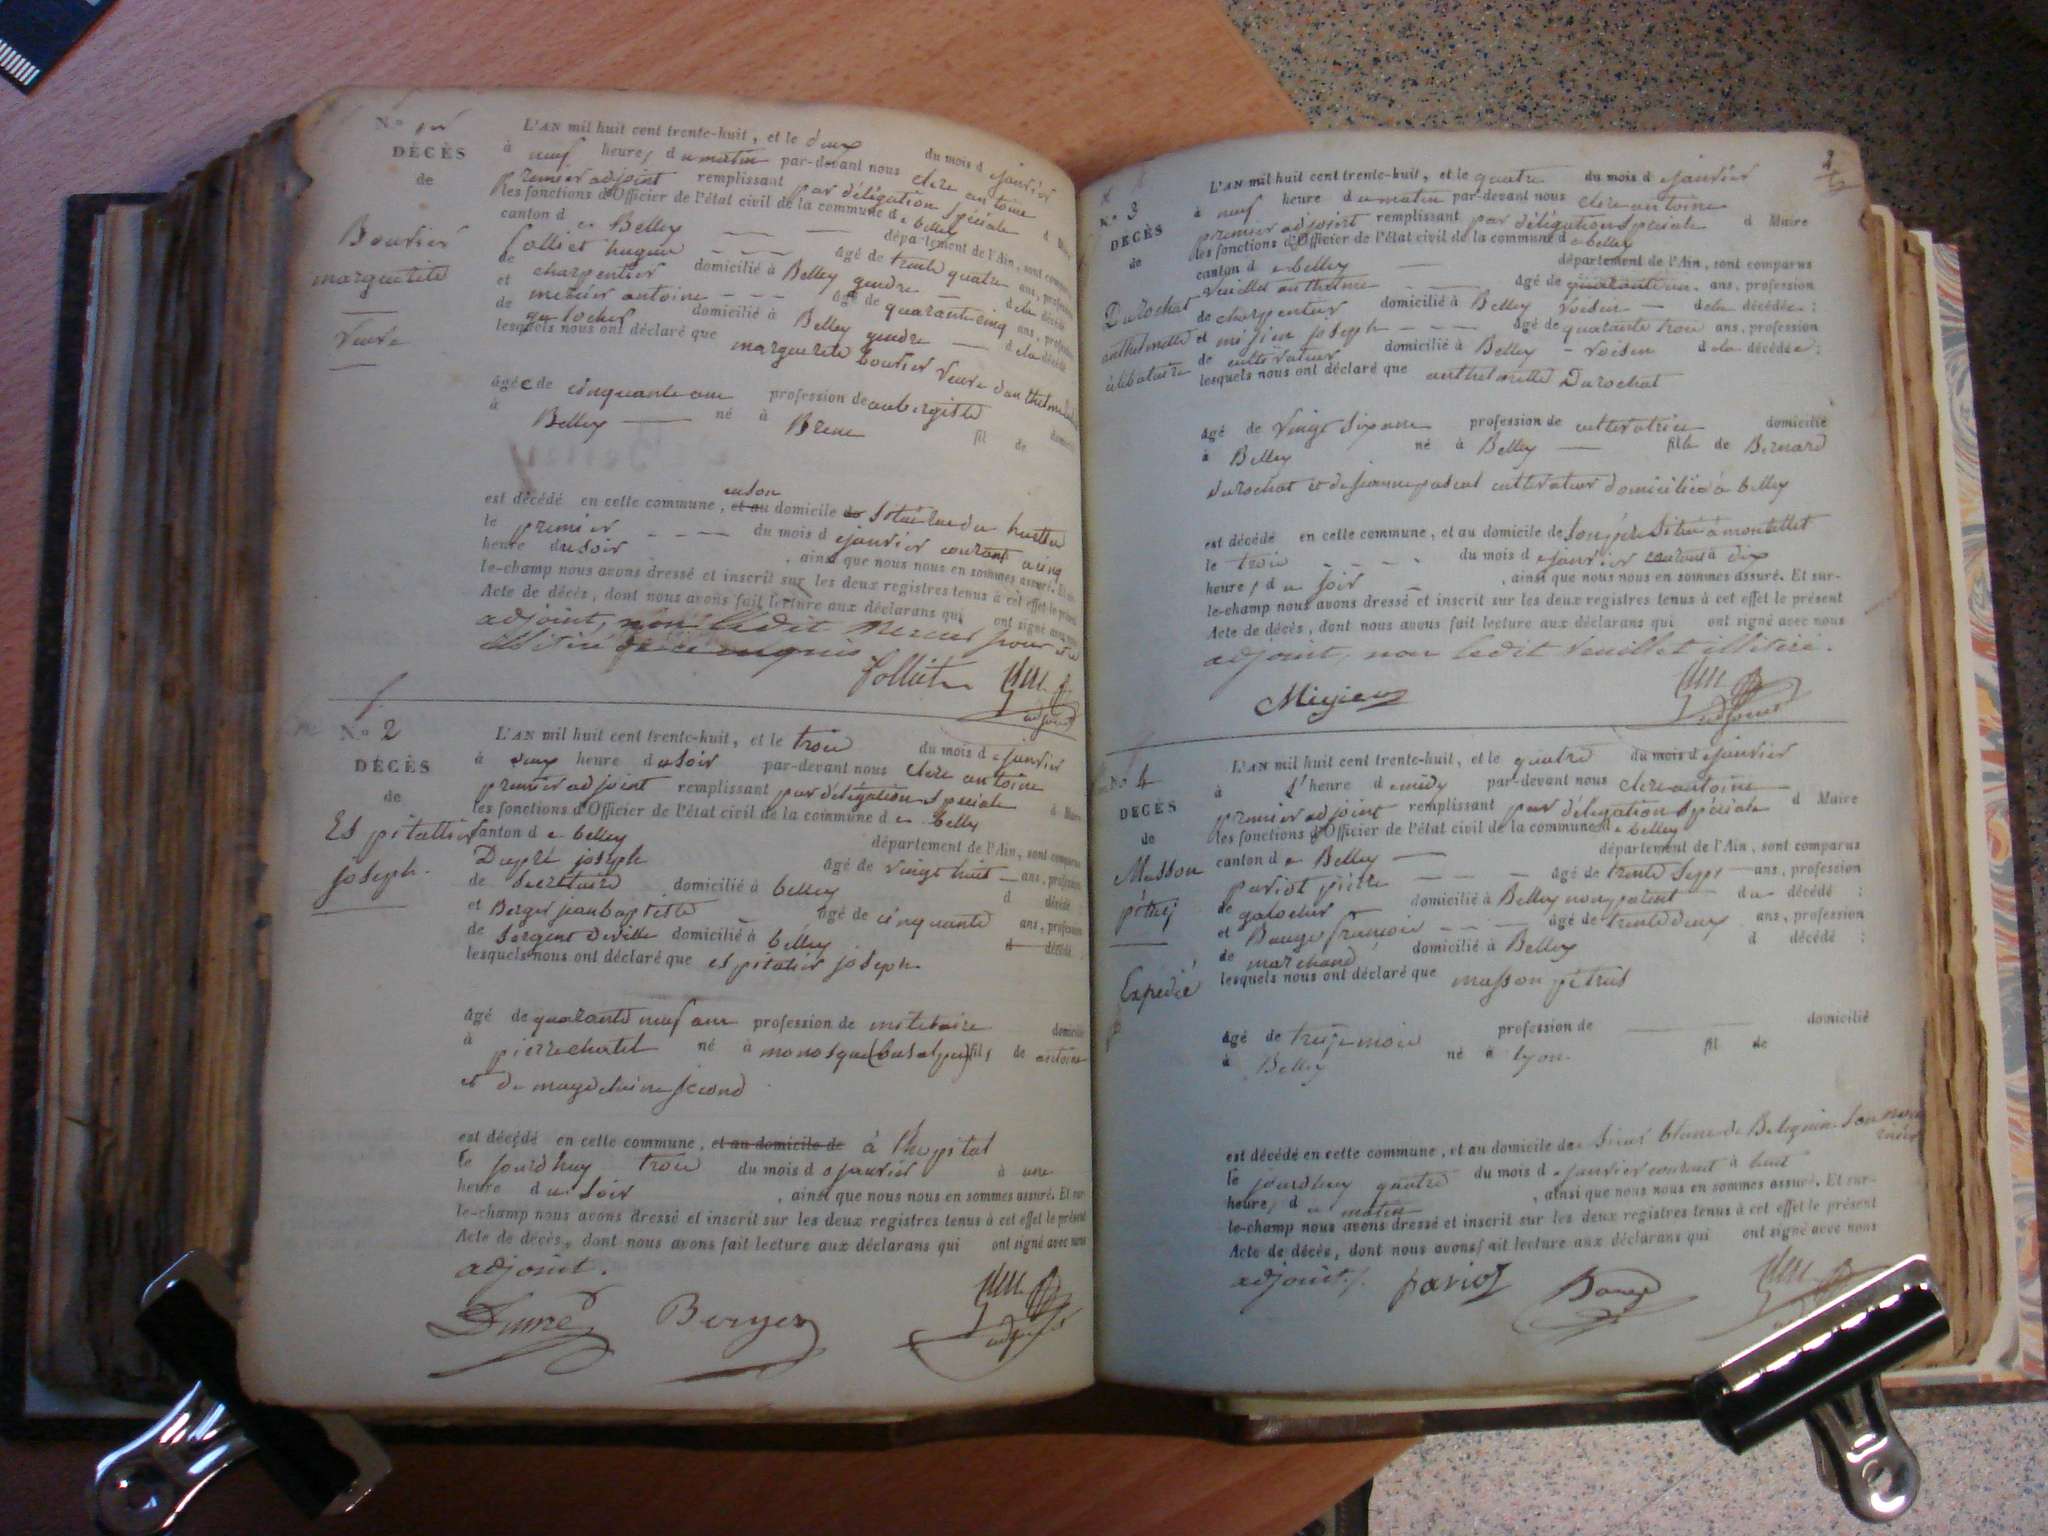 N.º 1er
DÉCÈS
de
Bouvier
marguerite
veuve
L'AN mil huit cent trente-huit, et le deux du mois de janvier
à neuf heures du matin par-devant nous clerc antoine
premier adjoint remplissant par délégation spéciale d Maire
les fonctions d'Officier de l'état civil de la commune de belley
canton de Belley département de l'Ain, sont comparus
folliet hugue âgé de trente quatre ans, profession
de charpentier domicilié à Belley gendre de la décédée
et mercier antoine âgé de quarante cinq ans, profession
de galocher domicilié à Belley gendre de la décédée
lesquels nous ont déclaré que marguerite bouvier veuve d'anthelme
âgée de cinquante ans profession de aubergiste domicilié
à Belley né à Brens fil de
est décédé en cette commune, et au en son domicile de situé rue du
le premier du mois de janvier courant a cinq
heure du soir , ainsi que nous nous en sommes assuré. Et sur-
le-champ nous avons dressé et inscrit sur les deux registres tenus à cet effet le présent
Acte de décès, dont nous avons fait lecture aux déclarans qui ont signé avec nous
adjoint, non ledit Mercier pour être
illitéré
folliet Clerc adjoint
N.º 2
DÉCÈS
de
Espitallier
joseph.
L'AN mil huit cent trente-huit, et le trois du mois de janvier
à deux heure du soir par-devant nous clerc antoine
premier adjoint remplissant par délégation spéciale d Maire
les fonctions d'Officier de l'état civil de la commune de belley
canton de belley département de l'Ain, sont comparus
Dupré joseph âgé de vingt huit ans, profession
de Secrétaire domicilié à belley d décédé :
et Berger jean baptiste âgé de cinquante ans, profession
de Sergent de ville domicilié à belley d décédé
lesquels nous ont déclaré que espitalier joseph
âgé de quarante neuf ans profession de militaire domicilié
à pierre chatel né à manosque (bases alpes) fils de antoine
et de magdelaine second
est décédé en cette commune, et au domicile de à l'hopital
le jourdhuy trois du mois de janvier à une
heure du soir , ainsi que nous nous en sommes assuré. Et sur-
le-champ nous avons dressé et inscrit sur les deux registres tenus à cet effet le présent
Acte de décès, dont nous avons fait lecture aux déclarans qui ont signé avec nous
adjoint.
Berger Clerc adjoint
2
N.º 3
DÉCÈS
de
Durochat
anthelmette
célibataire
L'AN mil huit cent trente-huit, et le quatre du mois de janvier
à neuf heure du matin par-devant nous clerc antoine
premier adjoint remplissant par délégation spéciale d Maire
les fonctions d'Officier de l'état civil de la commune de belley
canton de belley département de l'Ain, sont comparus
veuillet anthelme âgé de quarante un ans, profession
de charpentier domicilié à Belley voisin de la décédée :
et migieu joseph âgé de quarante trois ans, profession
de cultivateur domicilié à Belley voisin de la décédée :
lesquels nous ont déclaré que anthelmette Durochat
âgé de vingt six ans profession de cultivatrice domicilié
à Belley né à Belley fille de Bernard
durochat et de jeanne pascal cultivateur domiciliés à belley
est décédé en cette commune, et au domicile de son père situé à montillet
le trois du mois de janvier courant à dix
heures du soir , ainsi que nous nous en sommes assuré. Et sur-
le-champ nous avons dressé et inscrit sur les deux registres tenus à cet effet le présent
Acte de décès, dont nous avons fait lecture aux déclarans qui ont signé avec nous
adjoint, non ledit veuillet illitéré.
Migieu Clerc adjoint
N.º 4
DÉCÈS
de
Masson
pétrus
Expédié
L'AN mil huit cent trente-huit, et le quatre du mois de janvier
à l'heure de midy par-devant nous clerc antoine
premier adjoint remplissant par délégation spéciale d Maire
les fonctions d'Officier de l'état civil de la commune de belley
canton de Belley département de l'Ain, sont comparus
pariot pierre âgé de trente sept ans, profession
de galocher domicilié à Belley non parent du décédé :
et Bauge françois âgé de trente deux ans, profession
de marchand domicilié à Belley d décédé :
lesquels nous ont déclaré que masson pétrus
âgé de treize mois profession de domicilié
à Belley né à lyon fil de
est décédé en cette commune, et au domicile de
le jourdhuy quatre du mois de janvier courant à huit
heures du matin , ainsi que nous nous en sommes assuré. Et sur-
le-champ nous avons dressé et inscrit sur les deux registres tenus à cet effet le présent
Acte de décès, dont nous avons fait lecture aux déclarans qui ont signé avec nous
adjoint. pariot Bauge Clerc